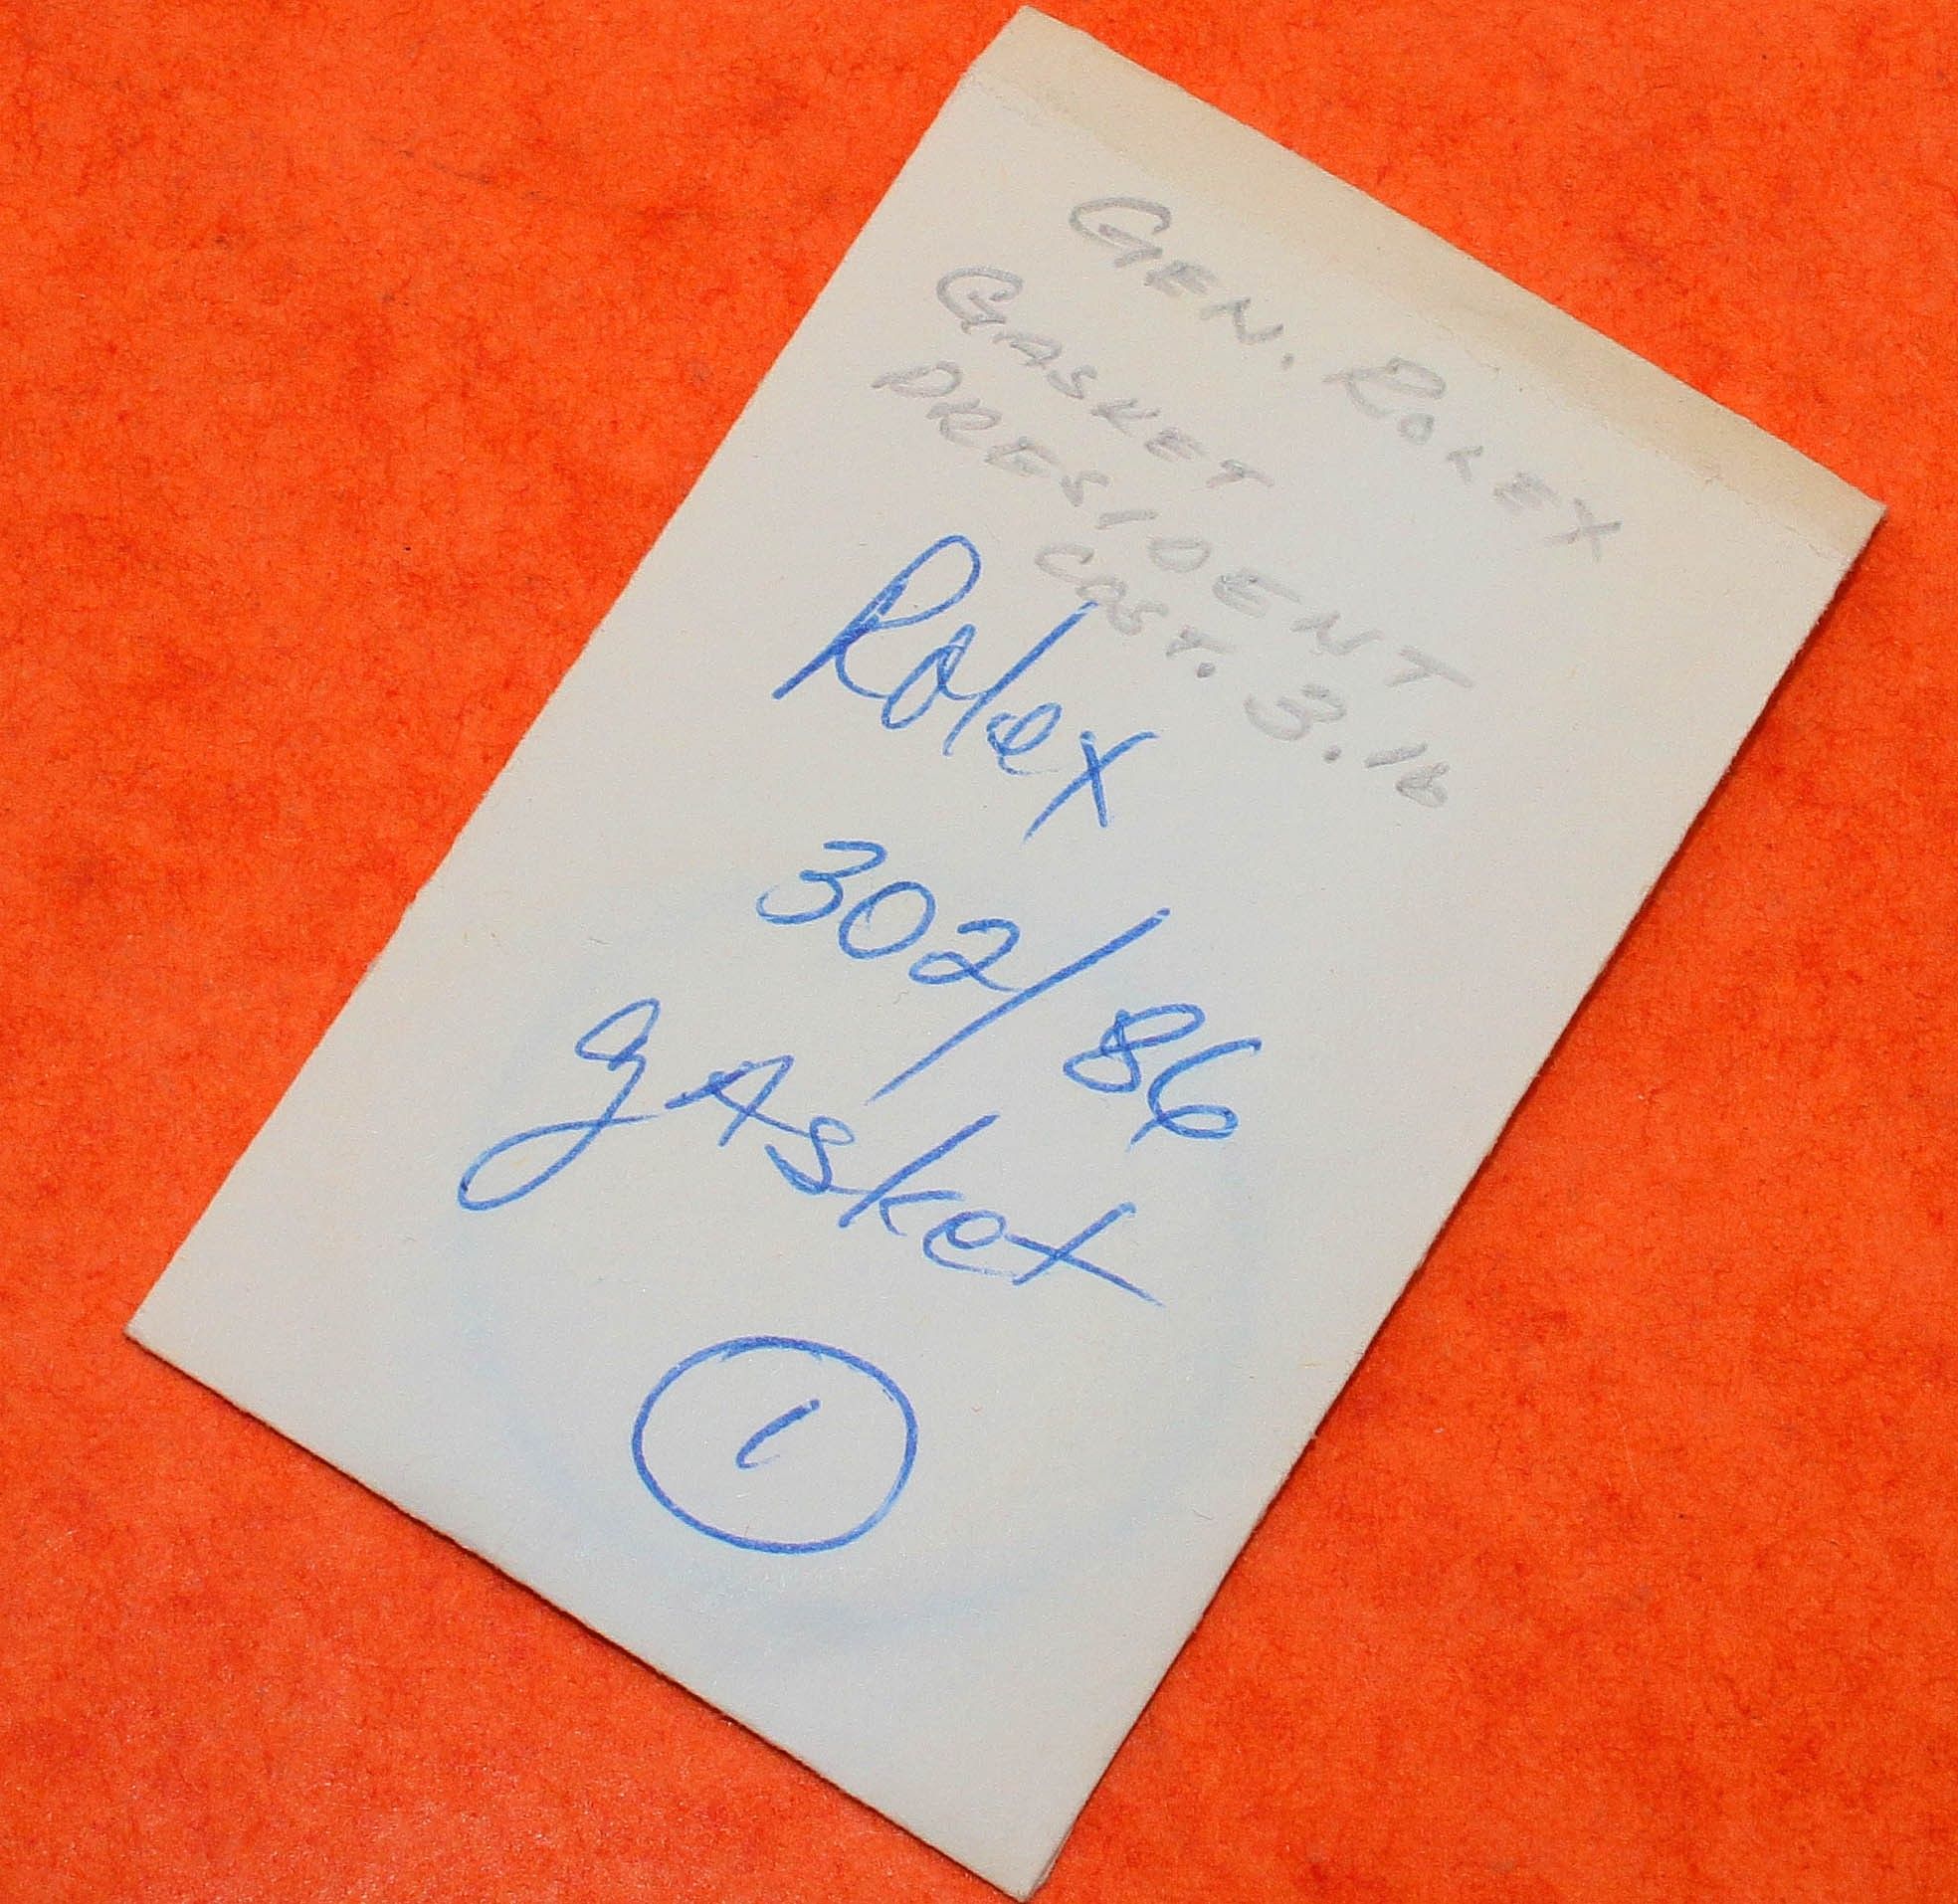 GEN. ROLEX
GASKET
PRESIDENT
COST. 3.10
Rolex
302/86
gAsket
1